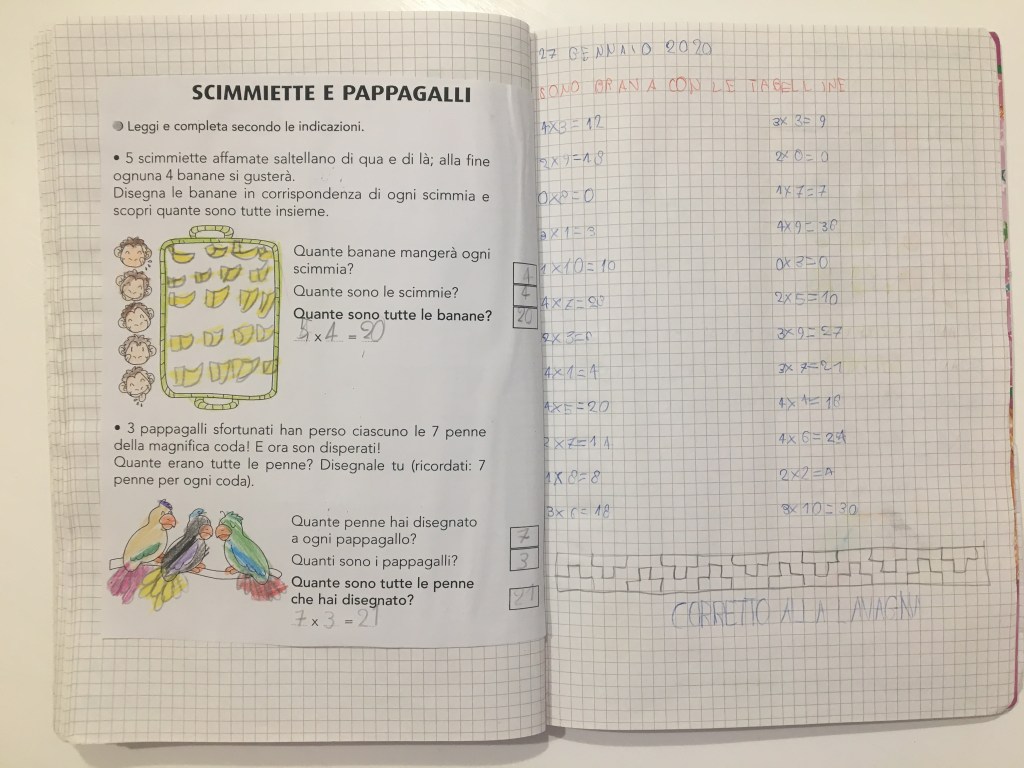 SCIMMIETTE E PAPPAGALLI
Leggi e completa secondo le indicazioni.
• 5 scimmiette affamate saltellano di qua e di là; alla fine
ognuna 4 banane si gusterà.
Disegna le banane in corrispondenza di ogni scimmia e
scopri quante sono tutte insieme.
Quante banane mangerà ogni
scimmia? 4
Quante sono le scimmie?
Quante sono tutte le banane? 20
5 x 4 = 20
• 3 pappagalli sfortunati han perso ciascuno le 7 penne
della magnifica coda! E ora son disperati!
Quante erano tutte le penne? Disegnale tu (ricordati: 7
penne per ogni coda).
Quante penne hai disegnato
a ogni pappagallo? 7
Quanti sono i pappagalli? 3
Quante sono tutte le penne
che hai disegnato? 21
7 x 3 = 21
27 GENNAIO 2020
SONO BRAVA CON LE TABELLINE
4x3=12
2x9=18
0x8=0
3x1=3
1x10=10
4x7=28
2x3=6
4x1=4
4x5=20
2x7=14
1x8=8
3x6=18
3x3=9
2x0=0
1x7=7
4x9=36
0x3=0
2x5=10
3x9=27
3x7=21
4x4=16
4x6=24
2x2=4
3x10=30
CORRETTO ALLA LAVAGNA